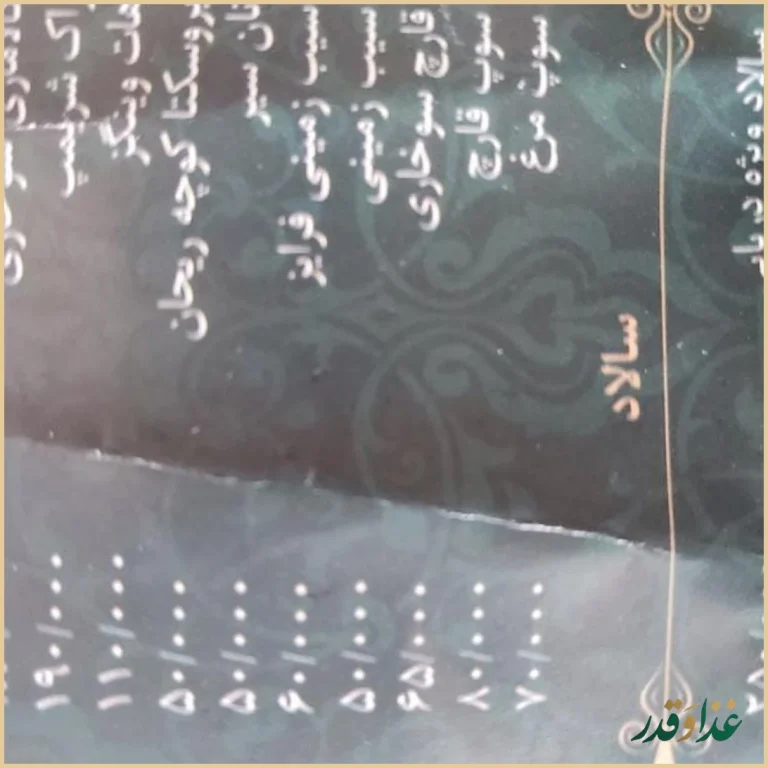 شریمپ ۱۹۰/۰۰۰
هات وینگز ۱۱۰/۰۰۰
بروسکتا کوچه ریحان ۵۰/۰۰۰
نان سیر ۵۰/۰۰۰
سیب زمینی فرایز ۶۰/۰۰۰
سیب زمینی ۵۰/۰۰۰
قارچ سوخاری ۶۵/۰۰۰
سوپ قارچ ۸۰/۰۰۰
سوپ مرغ ۷۰/۰۰۰
سالاد
سالاد ویژه
غذا و قدر